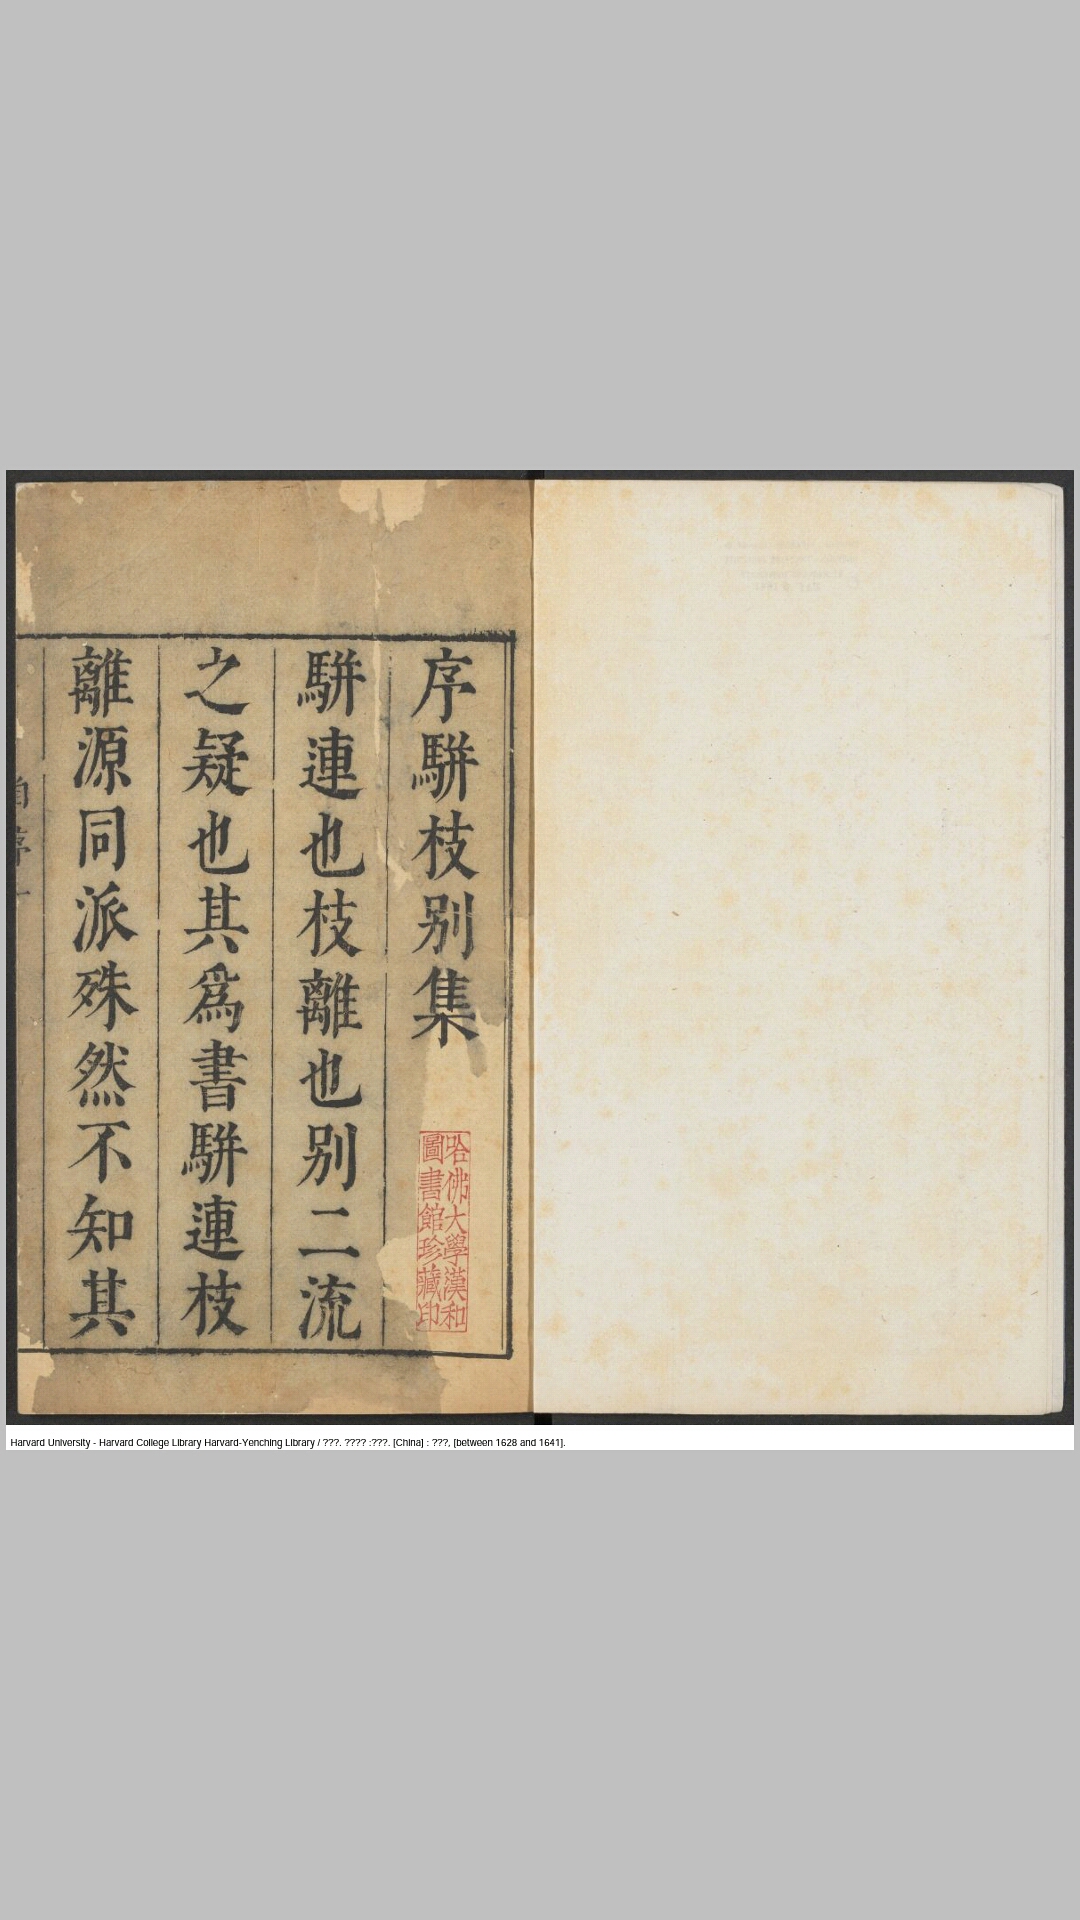 序駢枝别集
駢連也枝離也别二流
之疑也其爲書駢連枝
離源同派殊然不知其
自序 一
哈佛大學漢和
圖書館珍藏印
Harvard University - Harvard College Library Harvard-Yenching Library / ???. ???? :???. [China] : ???, [between 1628 and 1641].